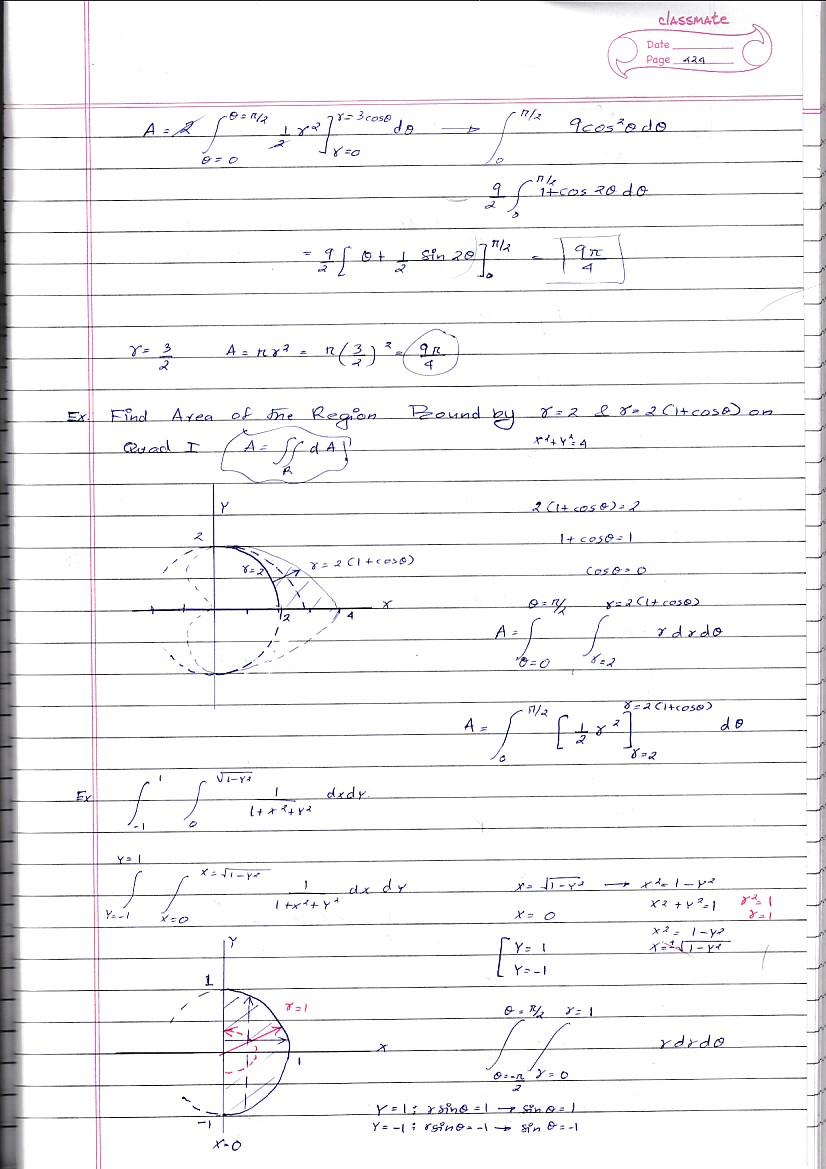 classmate
Date
Page 424
A = 2 ∫_{θ=0}^{θ=π/2} 1/2 r² ]_{r=0}^{r=3cosθ} dθ → ∫_0^{π/2} 9cos²θ dθ
9/2 ∫_0^{π/2} 1+cos 2θ dθ
= 9/2 [ θ + 1/2 sin 2θ ]_0^{π/2} = 9π/4
r = 3/2 A = πr² = π(3/2)² = 9π/4
Ex. Find Area of the Region Bound by r=2 & r=2(1+cosθ) on
Quad I ( A = ∬_R dA ) x²+y²=4
Y
2(1+cosθ)=2
2
1+cosθ=1
r=2 r=2(1+cosθ)
cosθ=0
2 4 X
A = ∫_{θ=0}^{θ=π/2} ∫_{r=2}^{r=2(1+cosθ)} r dr dθ
A = ∫_0^{π/2} [ 1/2 r² ]_{r=2}^{r=2(1+cosθ)} dθ
Ex ∫_{-1}^{1} ∫_0^{√1-y²} 1/(1+x²+y²) dxdy.
∫_{y=-1}^{y=1} ∫_{x=0}^{x=√1-y²} 1/(1+x²+y²) dx dy
x=√1-y² → x²=1-y²
x²+y²=1 r²=1
r=1
x = 0
x² = 1-y²
x=±√1-y²
[ Y = 1
Y = -1
Y
1
r=1
X
1
-1
x=0
∫_{θ=-π/2}^{θ=π/2} ∫_{r=0}^{r=1} r dr dθ
Y=1 : r sinθ=1 → sinθ=1
Y=-1 : r sinθ=-1 → sinθ=-1